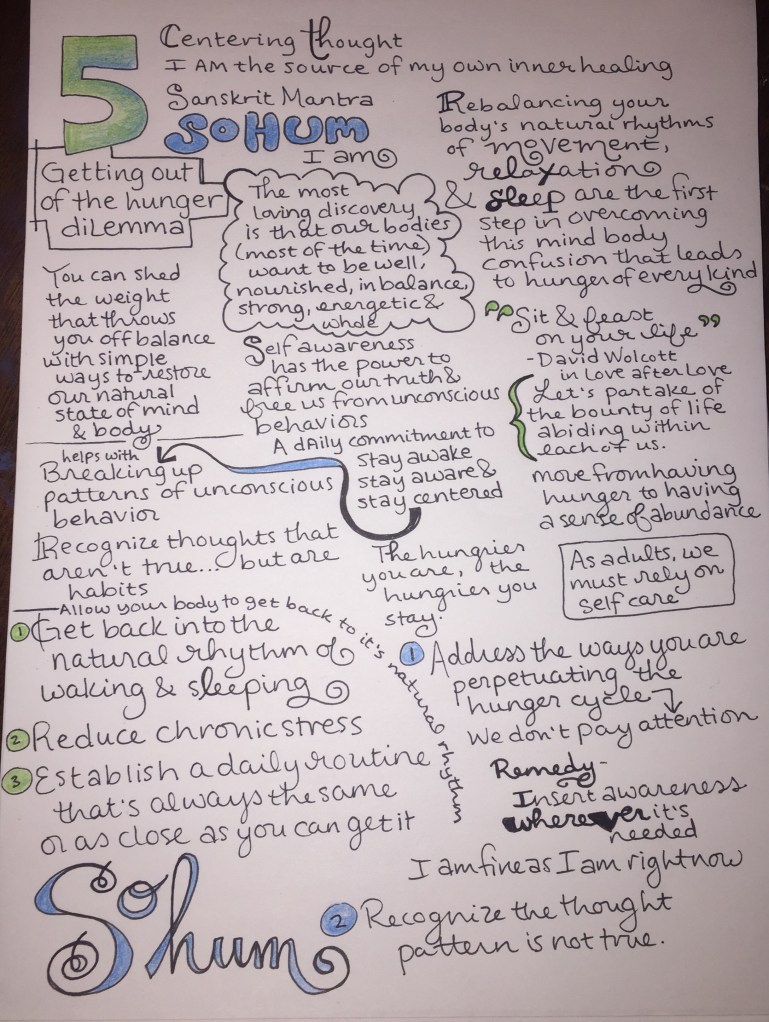 5
Centering thought
I AM the source of my own inner healing
Sanskrit Mantra
SOHUM
I am
Getting out
of the hunger
dilemma
The most
loving discovery
is that our bodies
(most of the time)
want to be well,
nourished, in balance,
strong, energetic &
whole
Rebalancing your
body's natural rhythms
of movement,
relaxation
& sleep are the first
step in overcoming
this mind body
confusion that leads
to hunger of every kind
You can shed
the weight
that throws
you off balance
with simple
ways to restore
our natural
state of mind
& body
Self awareness
has the power to
affirm our truth &
free us from unconscious
behaviors
"Sit & feast
on your life"
- David Wolcott
in Love after Love
Let's partake of
the bounty of life
abiding within
each of us.
A daily commitment to
stay awake
stay aware &
stay centered
helps with
Breaking up
patterns of unconscious
behavior
move from having
hunger to having
a sense of abundance
Recognize thoughts that
aren't true... but are
habits
The hungrier
you are, the
hungrier you
stay.
As adults, we
must rely on
self care
Allow your body to get back to it's natural rhythm
1 Get back into the
natural rhythm of
waking & sleeping
2 Reduce chronic stress
3 Establish a daily routine
that's always the same
or as close as you can get it
1 Address the ways you are
perpetuating the
hunger cycle
We don't pay attention
Remedy-
Insert awareness
wherever it's
needed
I am fine as I am right now
2 Recognize the thought
pattern is not true.
So hum